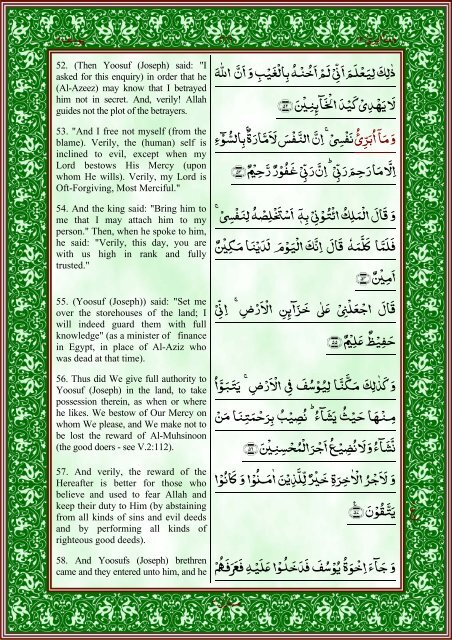 52. (Then Yoosuf (Joseph) said: "I
asked for this enquiry) in order that he
(Al-Azeez) may know that I betrayed
him not in secret. And, verily! Allah
guides not the plot of the betrayers.
53. "And I free not myself (from the
blame). Verily, the (human) self is
inclined to evil, except when my
Lord bestows His Mercy (upon
whom He wills). Verily, my Lord is
Oft-Forgiving, Most Merciful."
54. And the king said: "Bring him to
me that I may attach him to my
person." Then, when he spoke to him,
he said: "Verily, this day, you are
with us high in rank and fully
trusted."
55. (Yoosuf (Joseph)) said: "Set me
over the storehouses of the land; I
will indeed guard them with full
knowledge" (as a minister of finance
in Egypt, in place of Al-Aziz who
was dead at that time).
56. Thus did We give full authority to
Yoosuf (Joseph) in the land, to take
possession therein, as when or where
he likes. We bestow of Our Mercy on
whom We please, and We make not to
be lost the reward of Al-Muhsinoon
(the good doers - see V.2:112).
57. And verily, the reward of the
Hereafter is better for those who
believe and used to fear Allah and
keep their duty to Him (by abstaining
from all kinds of sins and evil deeds
and by performing all kinds of
righteous good deeds).
58. And Yoosufs (Joseph) brethren
came and they entered unto him, and he
ذٰلِكَ لِيَعْلَمَ اَنِّيْ لَمْ اَخُنْهُ بِالْغَيْبِ وَ اَنَّ اللّٰهَ
لَا يَهْدِيْ كَيْدَ الْخَآئِنِيْنَ ۝۵۲
وَ مَاۤ اُبَرِّئُ نَفْسِيْ ۚ اِنَّ النَّفْسَ لَاَمَّارَةٌۢ بِالسُّوْٓءِ
اِلَّا مَا رَحِمَ رَبِّيْ ؕ اِنَّ رَبِّيْ غَفُوْرٌ رَّحِيْمٌ ۝۵۳
وَ قَالَ الْمَلِكُ ائْتُوْنِيْ بِهٖۤ اَسْتَخْلِصْهُ لِنَفْسِيْ ۚ
فَلَمَّا كَلَّمَهٗ قَالَ اِنَّكَ الْيَوْمَ لَدَيْنَا مَكِيْنٌ
اَمِيْنٌ ۝۵۴
قَالَ اجْعَلْنِيْ عَلٰى خَزَآئِنِ الْاَرْضِ ۚ اِنِّيْ
حَفِيْظٌ عَلِيْمٌ ۝۵۵
وَ كَذٰلِكَ مَكَّنَّا لِيُوْسُفَ فِي الْاَرْضِ ۚ يَتَبَوَّاُ
مِنْهَا حَيْثُ يَشَآءُ ؕ نُصِيْبُ بِرَحْمَتِنَا مَنْ
نَّشَآءُ وَ لَا نُضِيْعُ اَجْرَ الْمُحْسِنِيْنَ ۝۵۶
وَ لَاَجْرُ الْاٰخِرَةِ خَيْرٌ لِّلَّذِيْنَ اٰمَنُوْا وَ كَانُوْا
يَتَّقُوْنَ ۝۵۷
وَ جَآءَ اِخْوَةُ يُوْسُفَ فَدَخَلُوْا عَلَيْهِ فَعَرَفَهُمْ